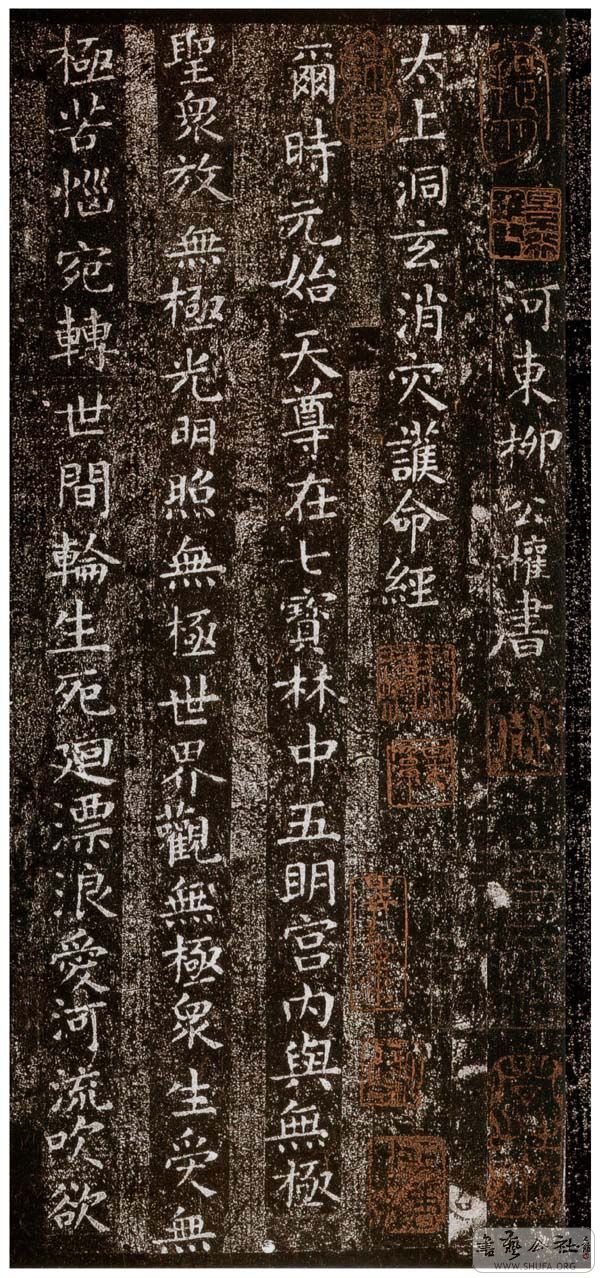 河東柳公權書
太上洞玄消灾護命經
爾時元始天尊在七寶林中五明宮內與無極
聖衆放無極光明照無極世界觀無極衆生受無
極苦惱宛轉世間輪生死廻漂浪愛河流吹欲
書艺公社
WWW.SHUFA.ORG